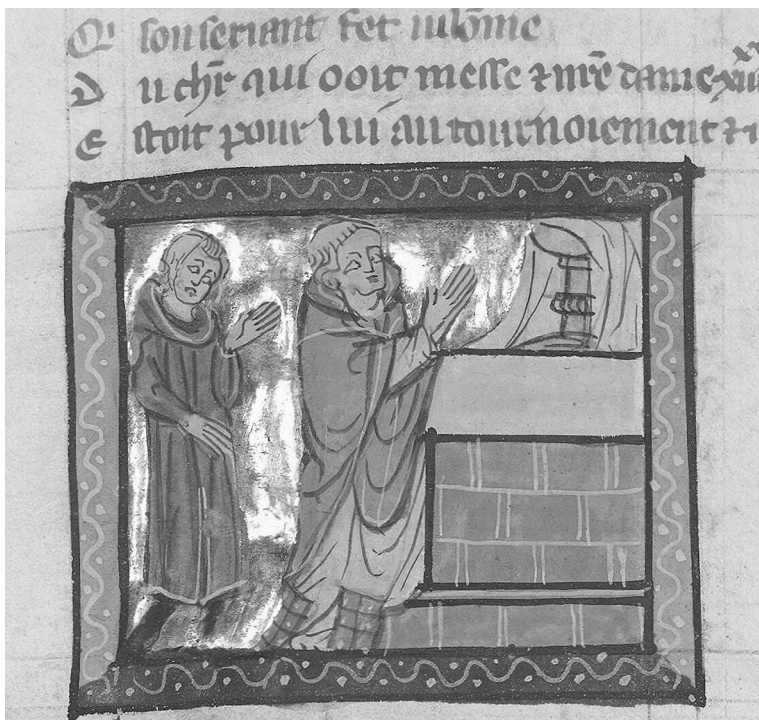 Q' son seriant fet iuls̄me
D u chr̄ qui ooit messe ⁊ nr̄e dame
E stoit pour lui au tournoiement ⁊